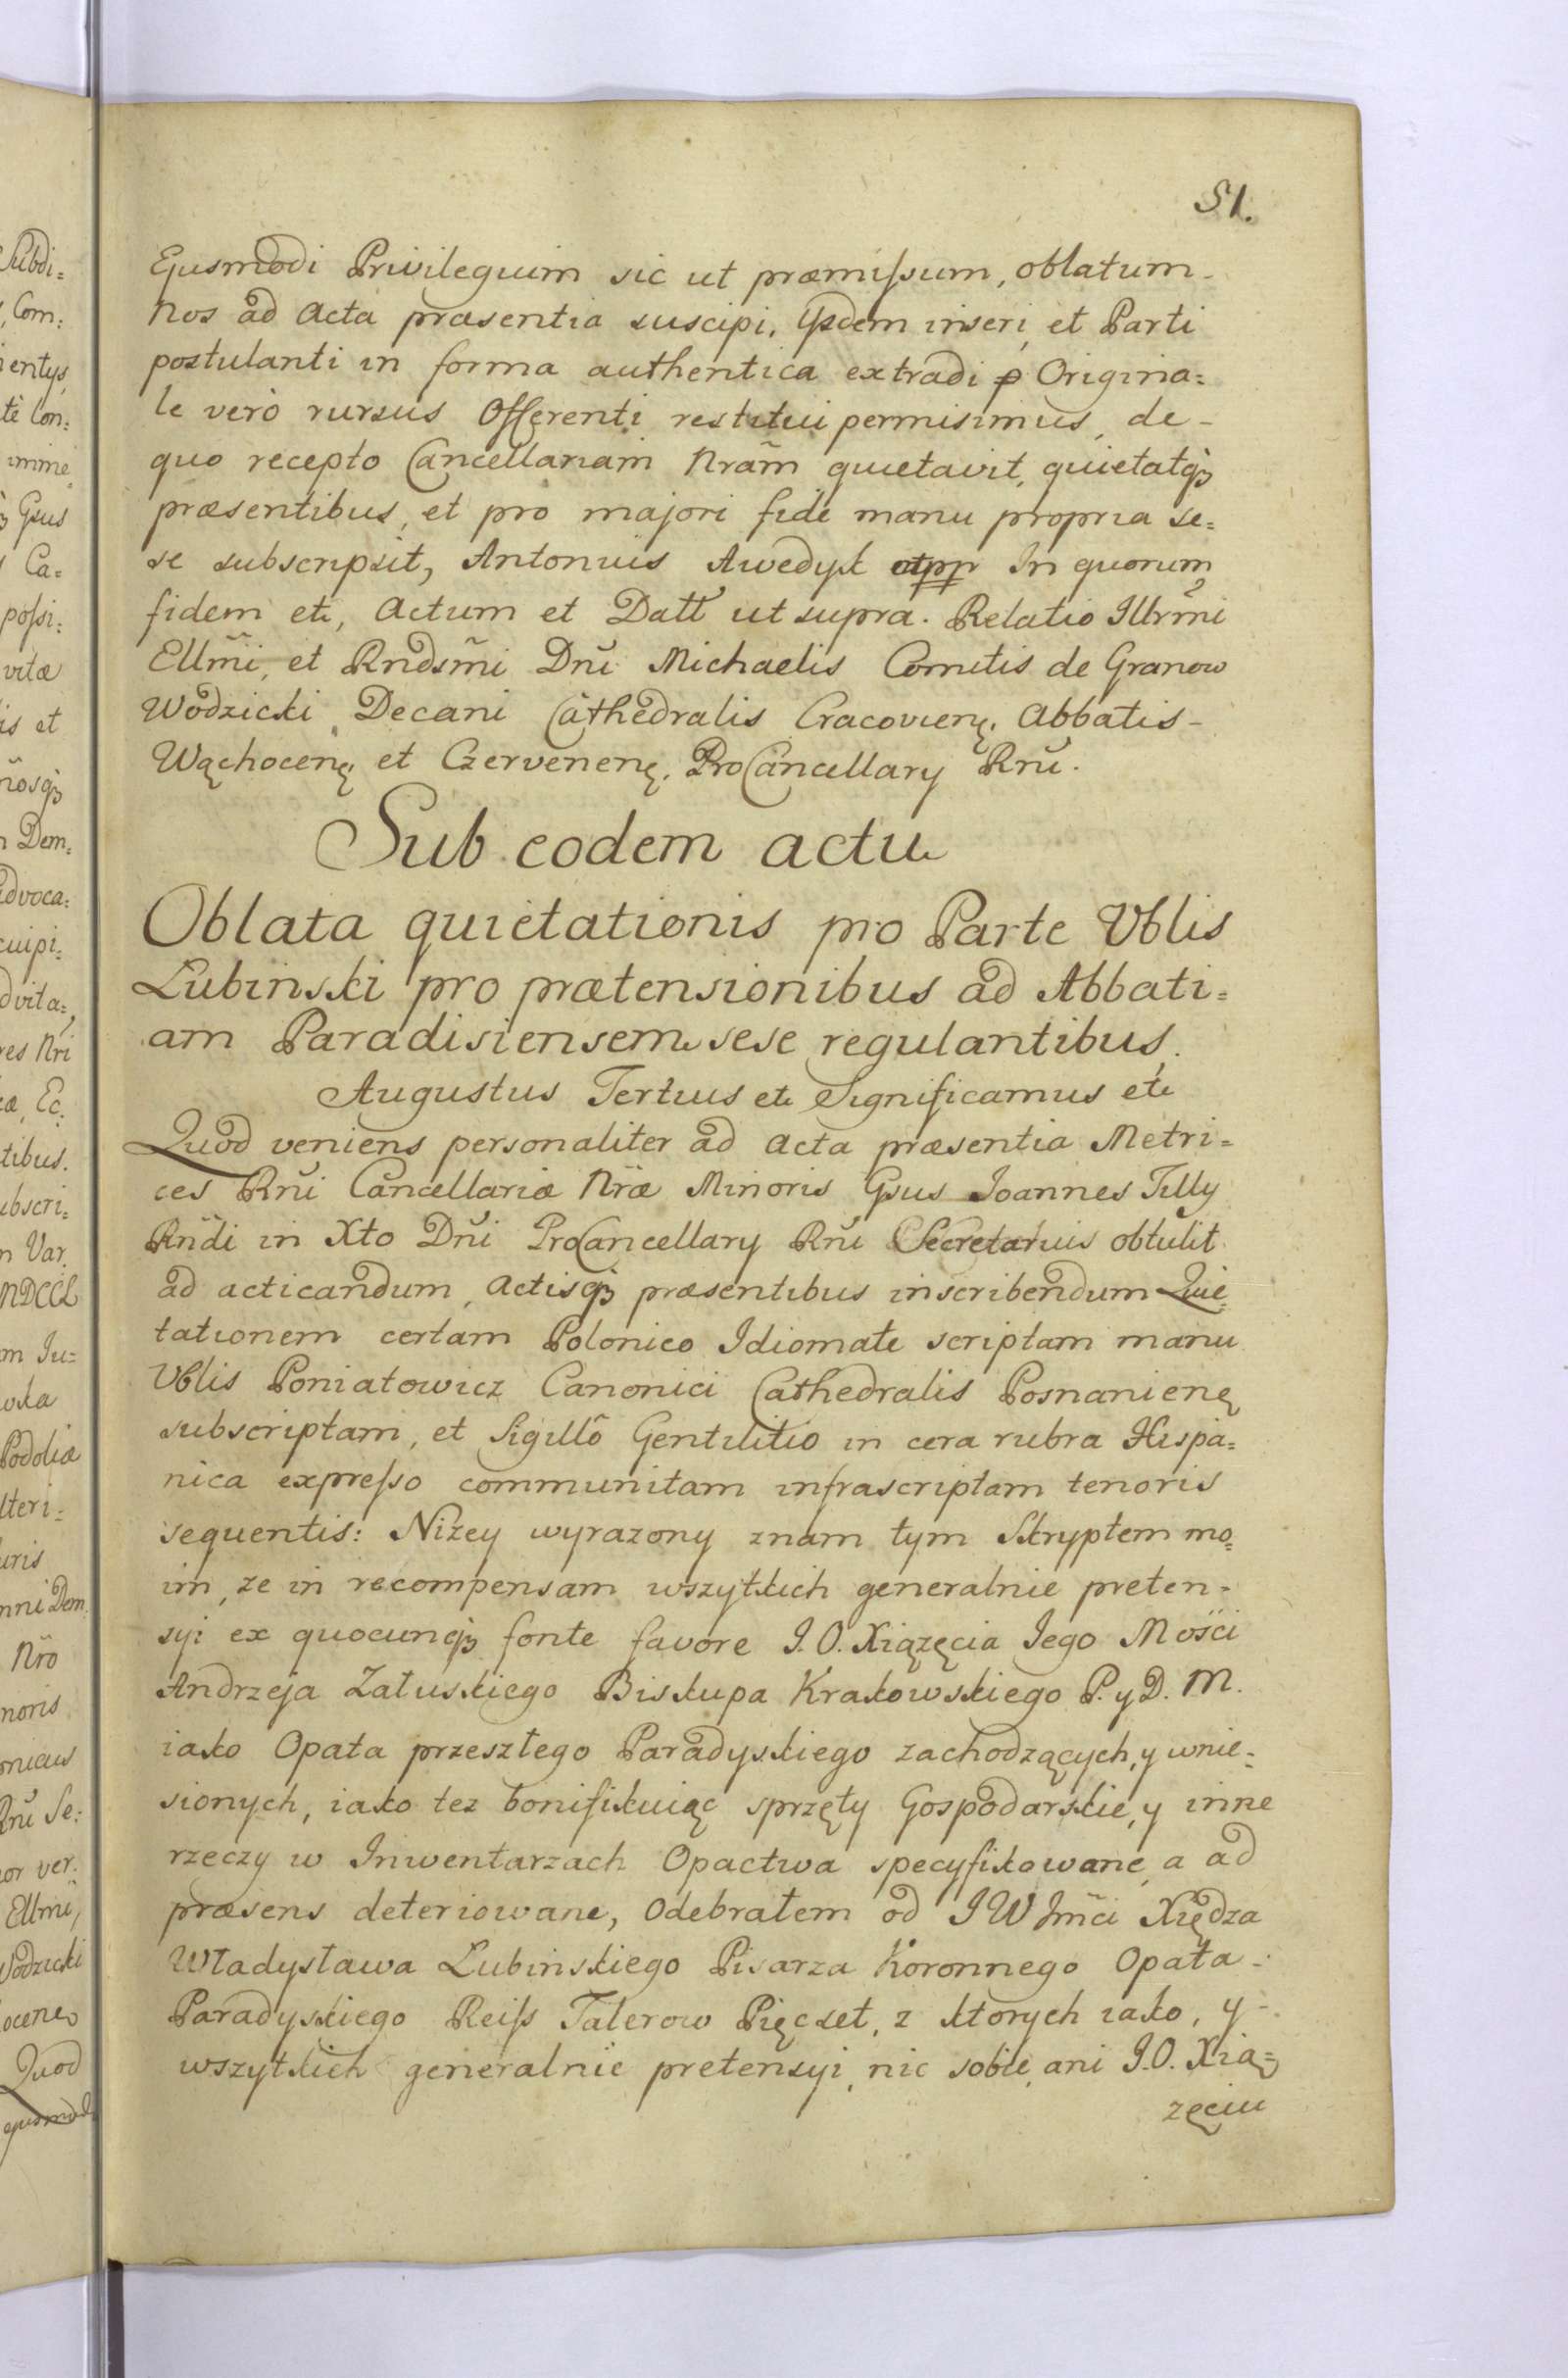 51.
Ejusmodi Privilegium sic ut præmissum, oblatum-
Nos ad Acta præsentia suscipi, Ijsdem inseri, et Parti
postulanti in forma authentica extradi Origina=
le verò rursus Offerenti restitui permisimus, de-
quo recepto Cancellariam Nrãm quietavit, quietatq3
præsentibus, et pro majori fide manu propria se=
se subscripsit, Antonius Awedyk mpp In quorum
fidem etc, Actum et Datt ut supra. Relatio Illrm̃i
Ellm̃i, et Rndsm̃i Dnĩ Michaelis Comitis de Granow
Wodzicki Decani Cathedralis Cracovienę. Abbatis-
Wąchocenę et Czervenenę. ProCancellary Rnũ.
Sub eodem actu
Oblata quietationis pro Parte Vblis
Lubinski pro prætensionibus ad Abbati=
am Paradisiensem sese regulantibus.
Augustus Tertius etc Significamus etc
Quod veniens personaliter ad Acta præsentia Metri=
ces Rnĩ Cancellariæ Nræ Minoris Gsus Joannes Tilly
Rndi in Xto Dnĩ ProCancellary Rnĩ Secretarius obtulit
ad acticandum, Actisq3 præsentibus inscribendum Quie=
tationem certam Polonico Idiomate scriptam manu
Vblis Poniatowicz Canonici Cathedralis Posnanienę
subscriptam, et Sigillô Gentilitio in cera rubra Hispa=
nica expresso communitam infrascriptam tenoris
sequentis: Nizey wyrazony znam tym Skryptem mo=
im, ze in recompensam wszytkich generalnie preten=
syi ex quocunq3 fonte favore J.O. Xiązęcia Jego Mości
Andrzeja Załuskiego Biskupa Krakowskiego P. y D. M.
iako Opata przeszłego Paradyskiego zachodzących, y wnie=
sionych, iako tez bonifikuiąc sprzęty Gospodarskie, y inne
rzeczy w Inwentarzach Opactwa specyfikowane, a ad
præsens deteriowane, Odebrałem od JW Jm̃ci Xiędza
Władysława Lubińskiego Pisarza Koronnego Opata-
Paradyskiego Reiss Talerow Pięcset, z ktorych iako, y-
wszytkich generalnie pretensyi, nic sobie, ani J.O. Xią=
zęciu